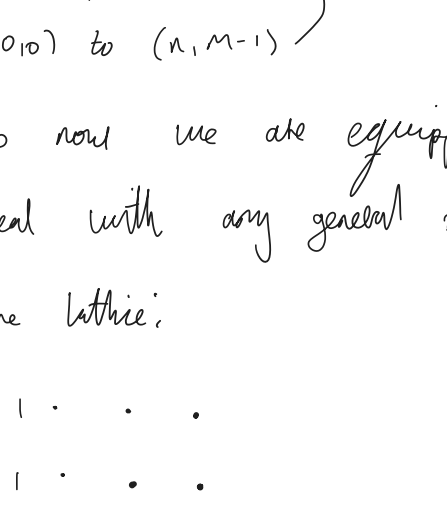 0,0) to (n, m-1)
now we are equip
eal with any general
lattice:
1 . . .
1 . . .